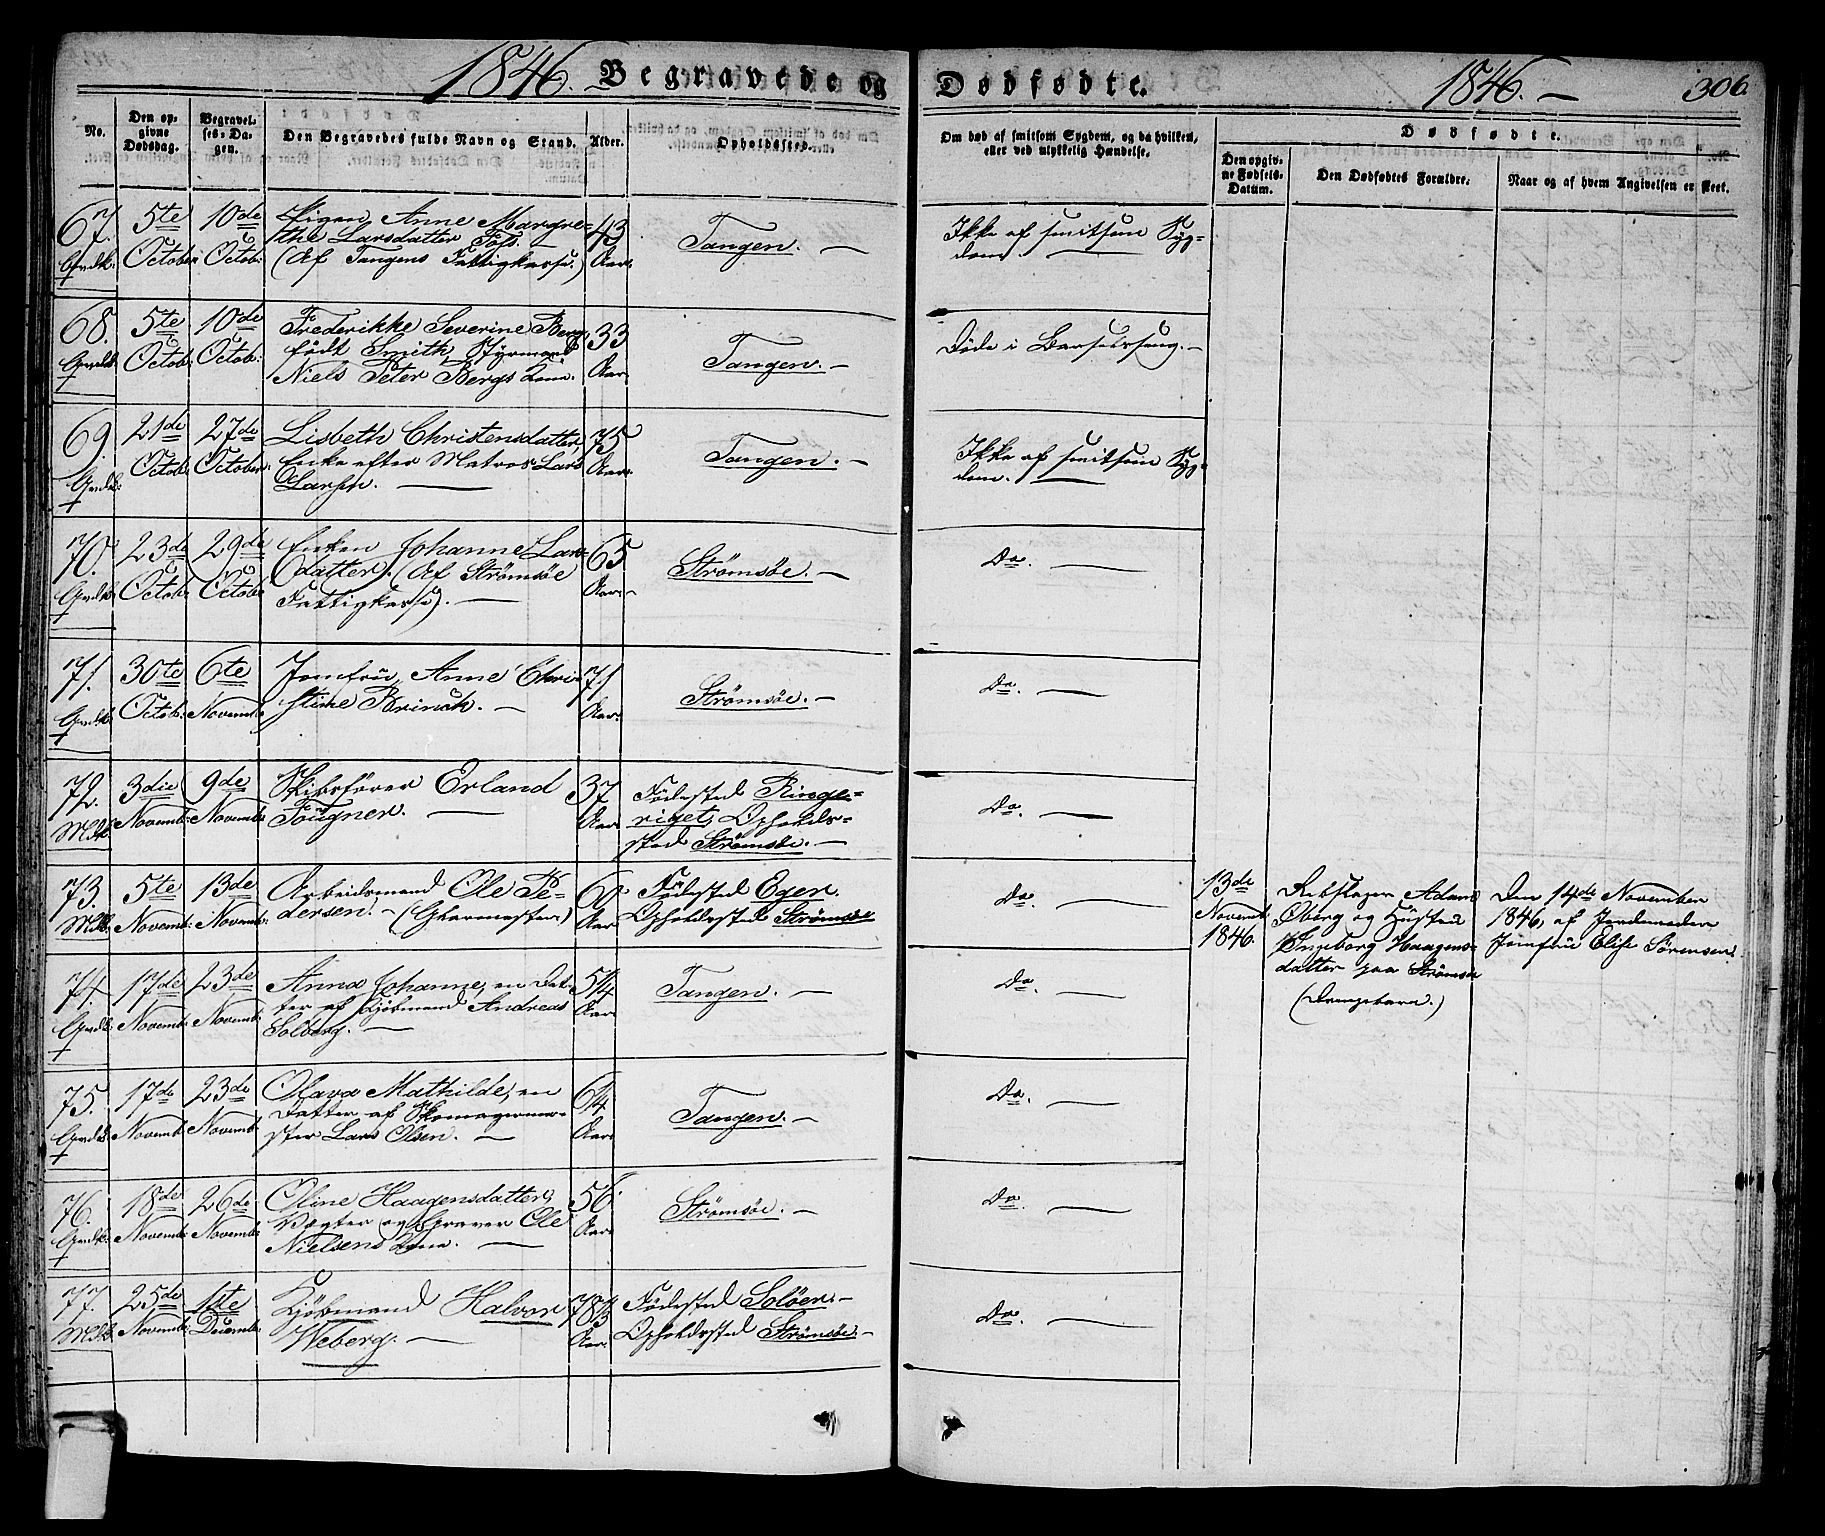 1846. Begravede og Dødfødte. 1846. — 306
No.
Den op-
givne
Dødsdag.
Begravel-
ses-Da-
gen.
Den Begravedes fulde Navn og Stand.
Alder.
Opholdssted.
Om død af smitsom Sygdom, og da hvilken,
eller ved ulykkelig Hændelse.
Dødfødte.
Den opgiv-
ne Fødsels-
Datum.
Den Dødfødtes Forældre.
Naar og af hvem Angivelsen er skeet.
67.
Qvdk:
5te
October
10de
Octob:
Pigen Anne Margre-
the Larsdatter Foss.
(Af Tangens Fattigkasse.)
43
Aar.
Tangen. —
Ikke af smitsom Syg-
dom. —
68.
Qvdk:
5te
Octob:
10de
Octob:
Frederikke Severine Berg
født Smith, Styrmand
Niels Peter Bergs Kone.
33
Aar.
Tangen. —
Døde i Barselseng. —
69.
Qvdk:
21de
Octob:
27de
October.
Lisbeth Christensdatter,
Enke efter Matros Lars
Larsen. —
75
Aar.
Tangen. —
Ikke af smitsom Syg-
dom. —
70.
Qvdk:
23de
Octob:
29de
Octob:
Enken Johanne Lars-
datter. (Af Strømsøe
Fattigkasse). —
65
Aar. —
Strømsøe. —
Do. —
71.
Qvdk:
30te
Octob:
6te
Novemb:
Jomfru Anne Chri-
stine Brinch. —
71
Aar.
Strømsøe. —
Do. —
72.
Mdk:
3die
Novemb:
9de
Novemb:
Skibsfører Erland
Fougner. —
37
Aar.
Fødested Ringe-
riget, Opholds-
sted Strømsøe. —
Do. —
73.
Mdk:
5te
Novemb:
13de
Novemb:
Arbeidsmand Ole Pe-
dersen. —
Aar.
Fødested Eger.
Opholdssted Strømsøe
Do. —
13de
Novemb:
1846.
Rebslager Adam
Øberg og Hustru
Ingeborg Haagens-
datter paa Strømsøe
(Drengebarn.)
Den 14de November
1846, af Jordemoder
Jomfru Elise Sørensen.
74.
Qvdk:
17de
Novemb:
23de
Novemb:
Anna Johanne, en Dat-
ter af Kjøbmand Andreas
Solberg. —
5/4
Aar.
Tangen. —
Do. —
75.
Qvdk:
17de
Novemb:
23de
Novemb:
Olava Mathilde, en
Datter af Skomagerme-
ster Lars Olsen. —
6/4
Aar.
Tangen. —
Do. —
76.
Qvdk:
18de
Novemb:
26de
Novemb:
Oline Haagensdatter,
Vægter og Graver Ole
Nielsens Kone. —
56
Aar.
Strømsøe. —
Do. —
77.
Mdk:
25de
Novemb:
1ste
Decemb:
Kjøbmand Halvor
Weberg. —
Aar.
Fødested Soløer. —
Opholdssted Strømsøe. —
Do. —